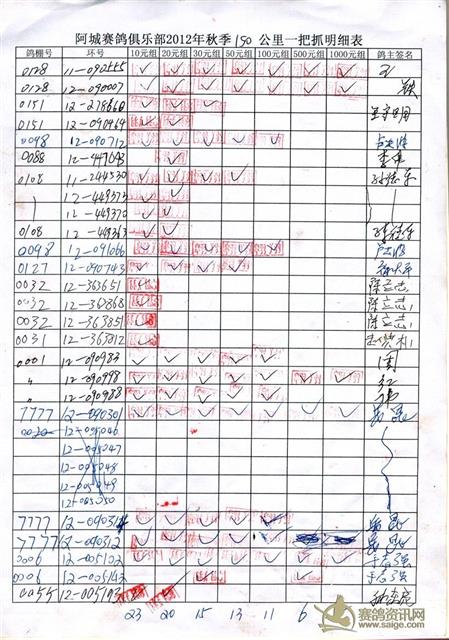 阿城赛鸽俱乐部2012年秋季150公里一把抓明细表
鸽棚号 环号 10元组 20元组 30元组 50元组 100元组 500元组 1000元组 鸽主签名
0128 11-090555
0128 12-090007
0151 12-278660
0151 12-090464
0098 12-090712
0088 12-447093
0108 11-244530
12-449373
12-449370
0108 12-449363
0098 12-091066
0127 12-090743
0032 12-363651 陈立志
0032 12-363868 陈立志
0032 12-363851 陈立志
0031 12-363012
0001 12-090983
〃 12-090998
〃 12-090988
7777 12-090301
12-095046
12-095047
12-095048
12-095049
12-005050
7777 12-090314
7777 12-090312
0006 12-005102
0006 12-005143
0055 12-005103
23 20 15 13 11 6
赛鸽资讯网
www.saige.com